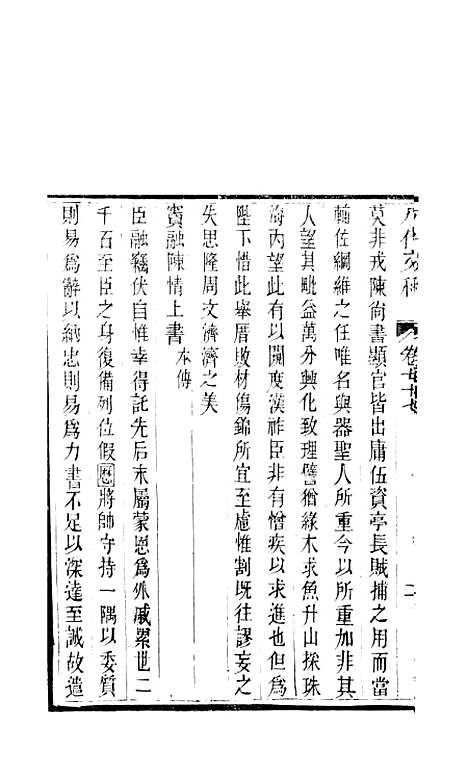 莫非戎陳尚書顯官皆出庸伍資亭長賊捕之用而當
輔佐綱維之任唯名與器聖人所重今以所重加非其
人望其毗益萬分興化致理譬猶緣木求魚升山採珠
海內望此有以闚度漢祚臣非有憎疾以求進也但爲
陛下惜此舉厝敗材傷錦所宜至慮惟割既往謬妄之
失思隆周文濟濟之美
竇融陳情上書 本傳
臣融竊伏自惟幸得託先后末屬蒙恩爲外戚累世二
千石至臣之身復備列位假歷將帥守持一隅以委質
則易爲辭以納忠則易爲力書不足以深達至誠故遣